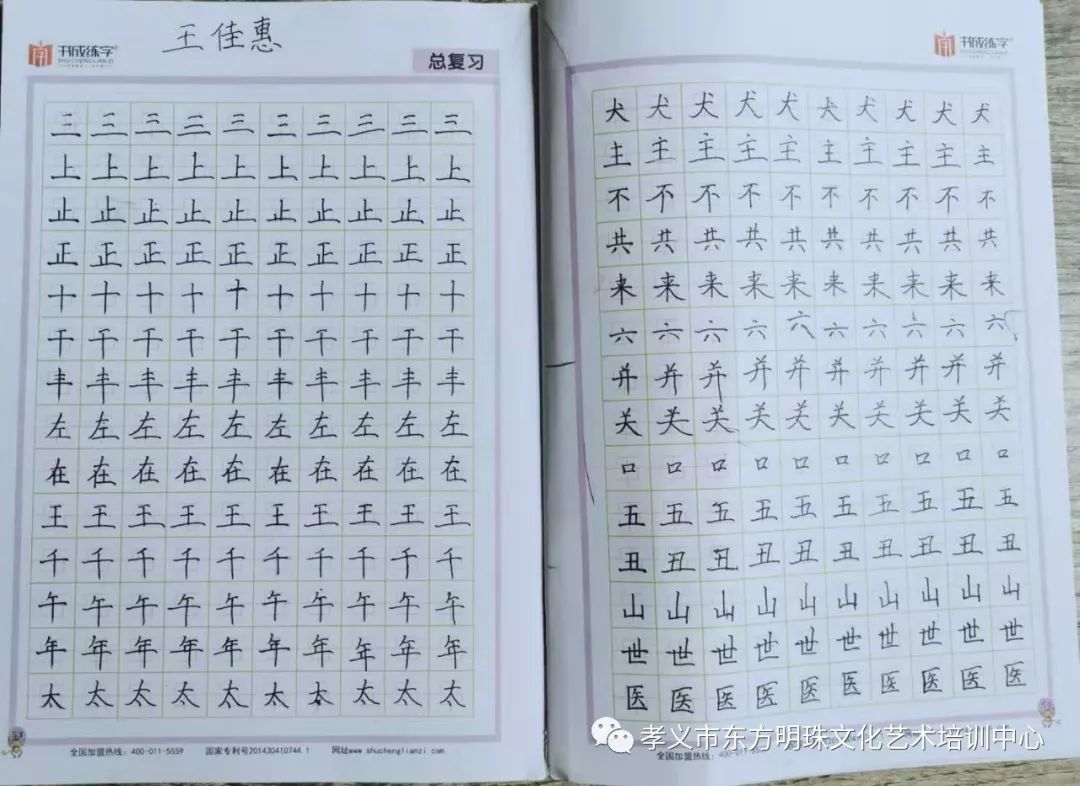 王佳惠
书成练字
SHU CHENG LIAN ZI
总复习
三三三三三三三三三三
上上上上上上上上上上
止止止止止止止止止止
正正正正正正正正正正
十十十十十十十十十十
干干干干干干干干干干
丰丰丰丰丰丰丰丰丰丰
左左左左左左左左左左
在在在在在在在在在在
王王王王王王王王王王
千千千千千千千千千千
午午午午午午午午午午
年年年年年年年年年年
太太太太太太太太太太
全国加盟热线:400-011-5559 国家专利号201430410744.1 网址www.shuchenglianzi.com
书成练字
SHU CHENG LIAN ZI
犬犬犬犬犬犬犬犬犬犬
主主主主主主主主主主
不不不不不不不不不不
共共共共共共共共共共
来来来来来来来来来来
六六六六六六六六六六
并并并并并并并并并并
关关关关关关关关关关
口口口口口口口口口口
五五五五五五五五五五
丑丑丑丑丑丑丑丑丑丑
山山山山山山山山山山
世世世世世世世世世世
医医医医医医医医医医
孝义市东方明珠文化艺术培训中心
全国加盟热线:400-011-